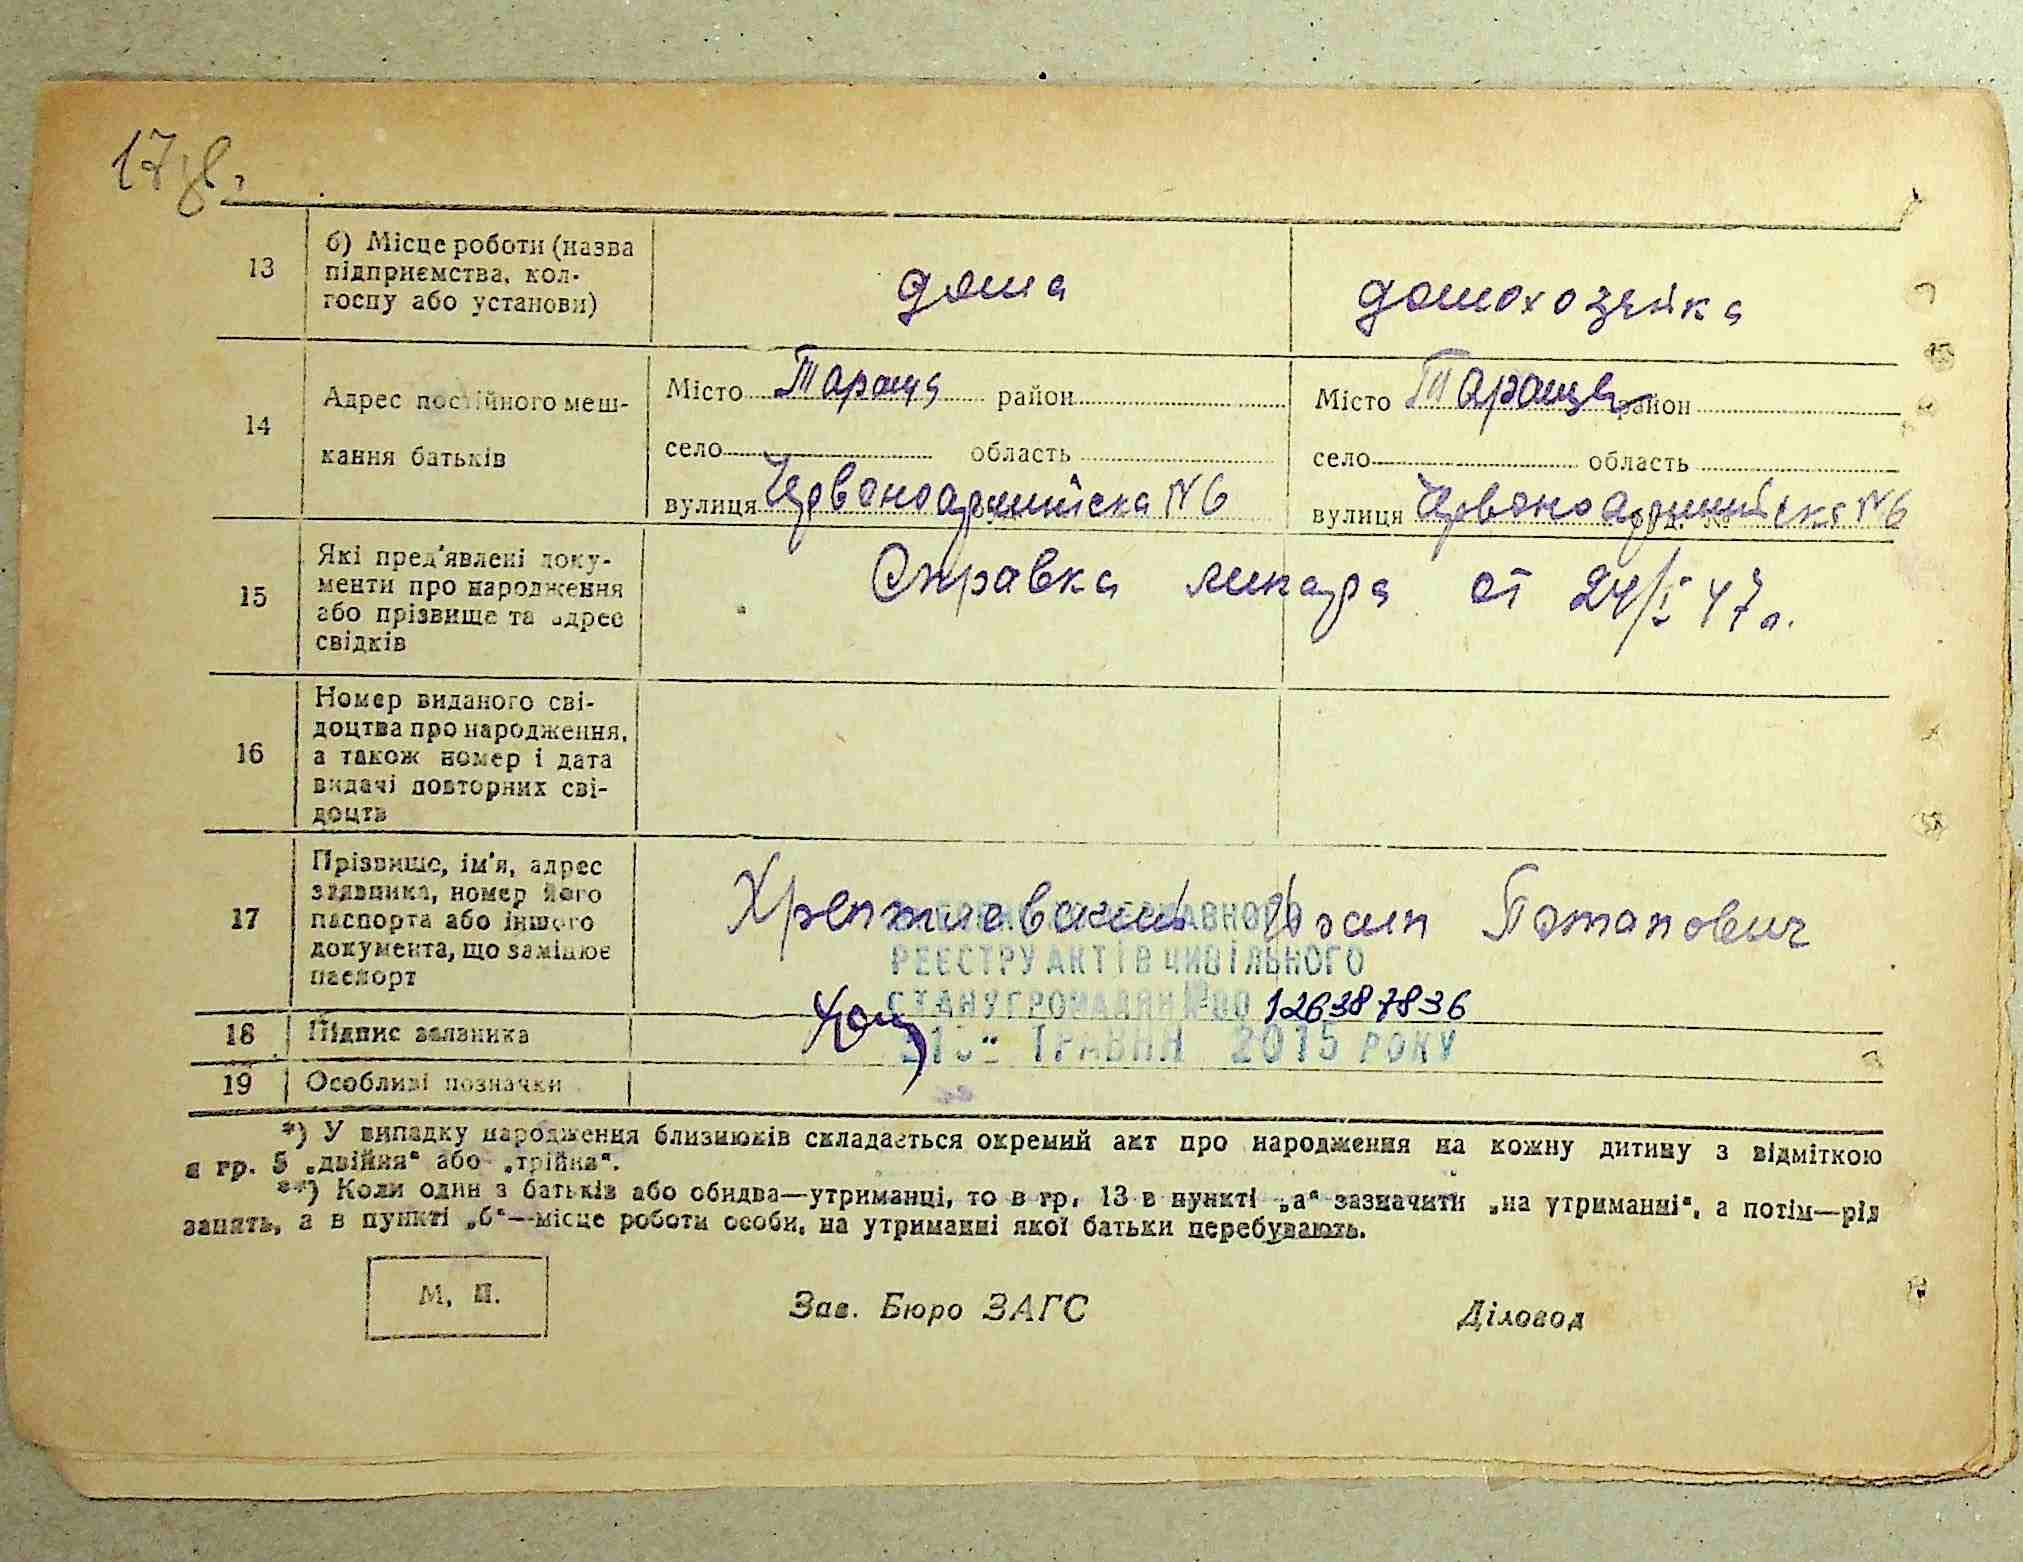 13
б) Місце роботи (назва
підприємства, кол-
госпу або установи)
дома
домохозяйка
14
Адрес постійного меш-
кання батьків
Місто Тараща район
село область
вулиця Червоноармійска №6
Місто Тараща район
село область
вулиця Червоноармійска №6
15
Які пред'явлені доку-
менти про народження
або прізвище та адрес
свідків
Справка ликаря от 24/I 47 г.
16
Номер виданого сві-
доцтва про народження,
а також номер і дата
видачі повторних сві-
доцтв
17
Прізвище, ім'я, адрес
заявника, номер його
паспорта або іншого
документа, що замінює
паспорт
Потапович
РЕЄСТРУ АКТІВ ЦИВІЛЬНОГО
СТАНУ ГРОМАДЯН № 00 126387836
ТРАВНЯ 2015 РОКУ
18
Підпис заявника
19
Особливі позначки
*) У випадку народження близнюків складається окремий акт про народження на кожну дитину з відміткою
в гр. 5 „двійня“ або „трійня“.
**) Коли один з батьків або обидва—утриманці, то в гр. 13 в пункті „а“ зазначити „на утриманні“, а потім—рід
занять, а в пункті „б“—місце роботи особи, на утриманні якої батьки перебувають.
М. П.
Зав. Бюро ЗАГС
Діловод